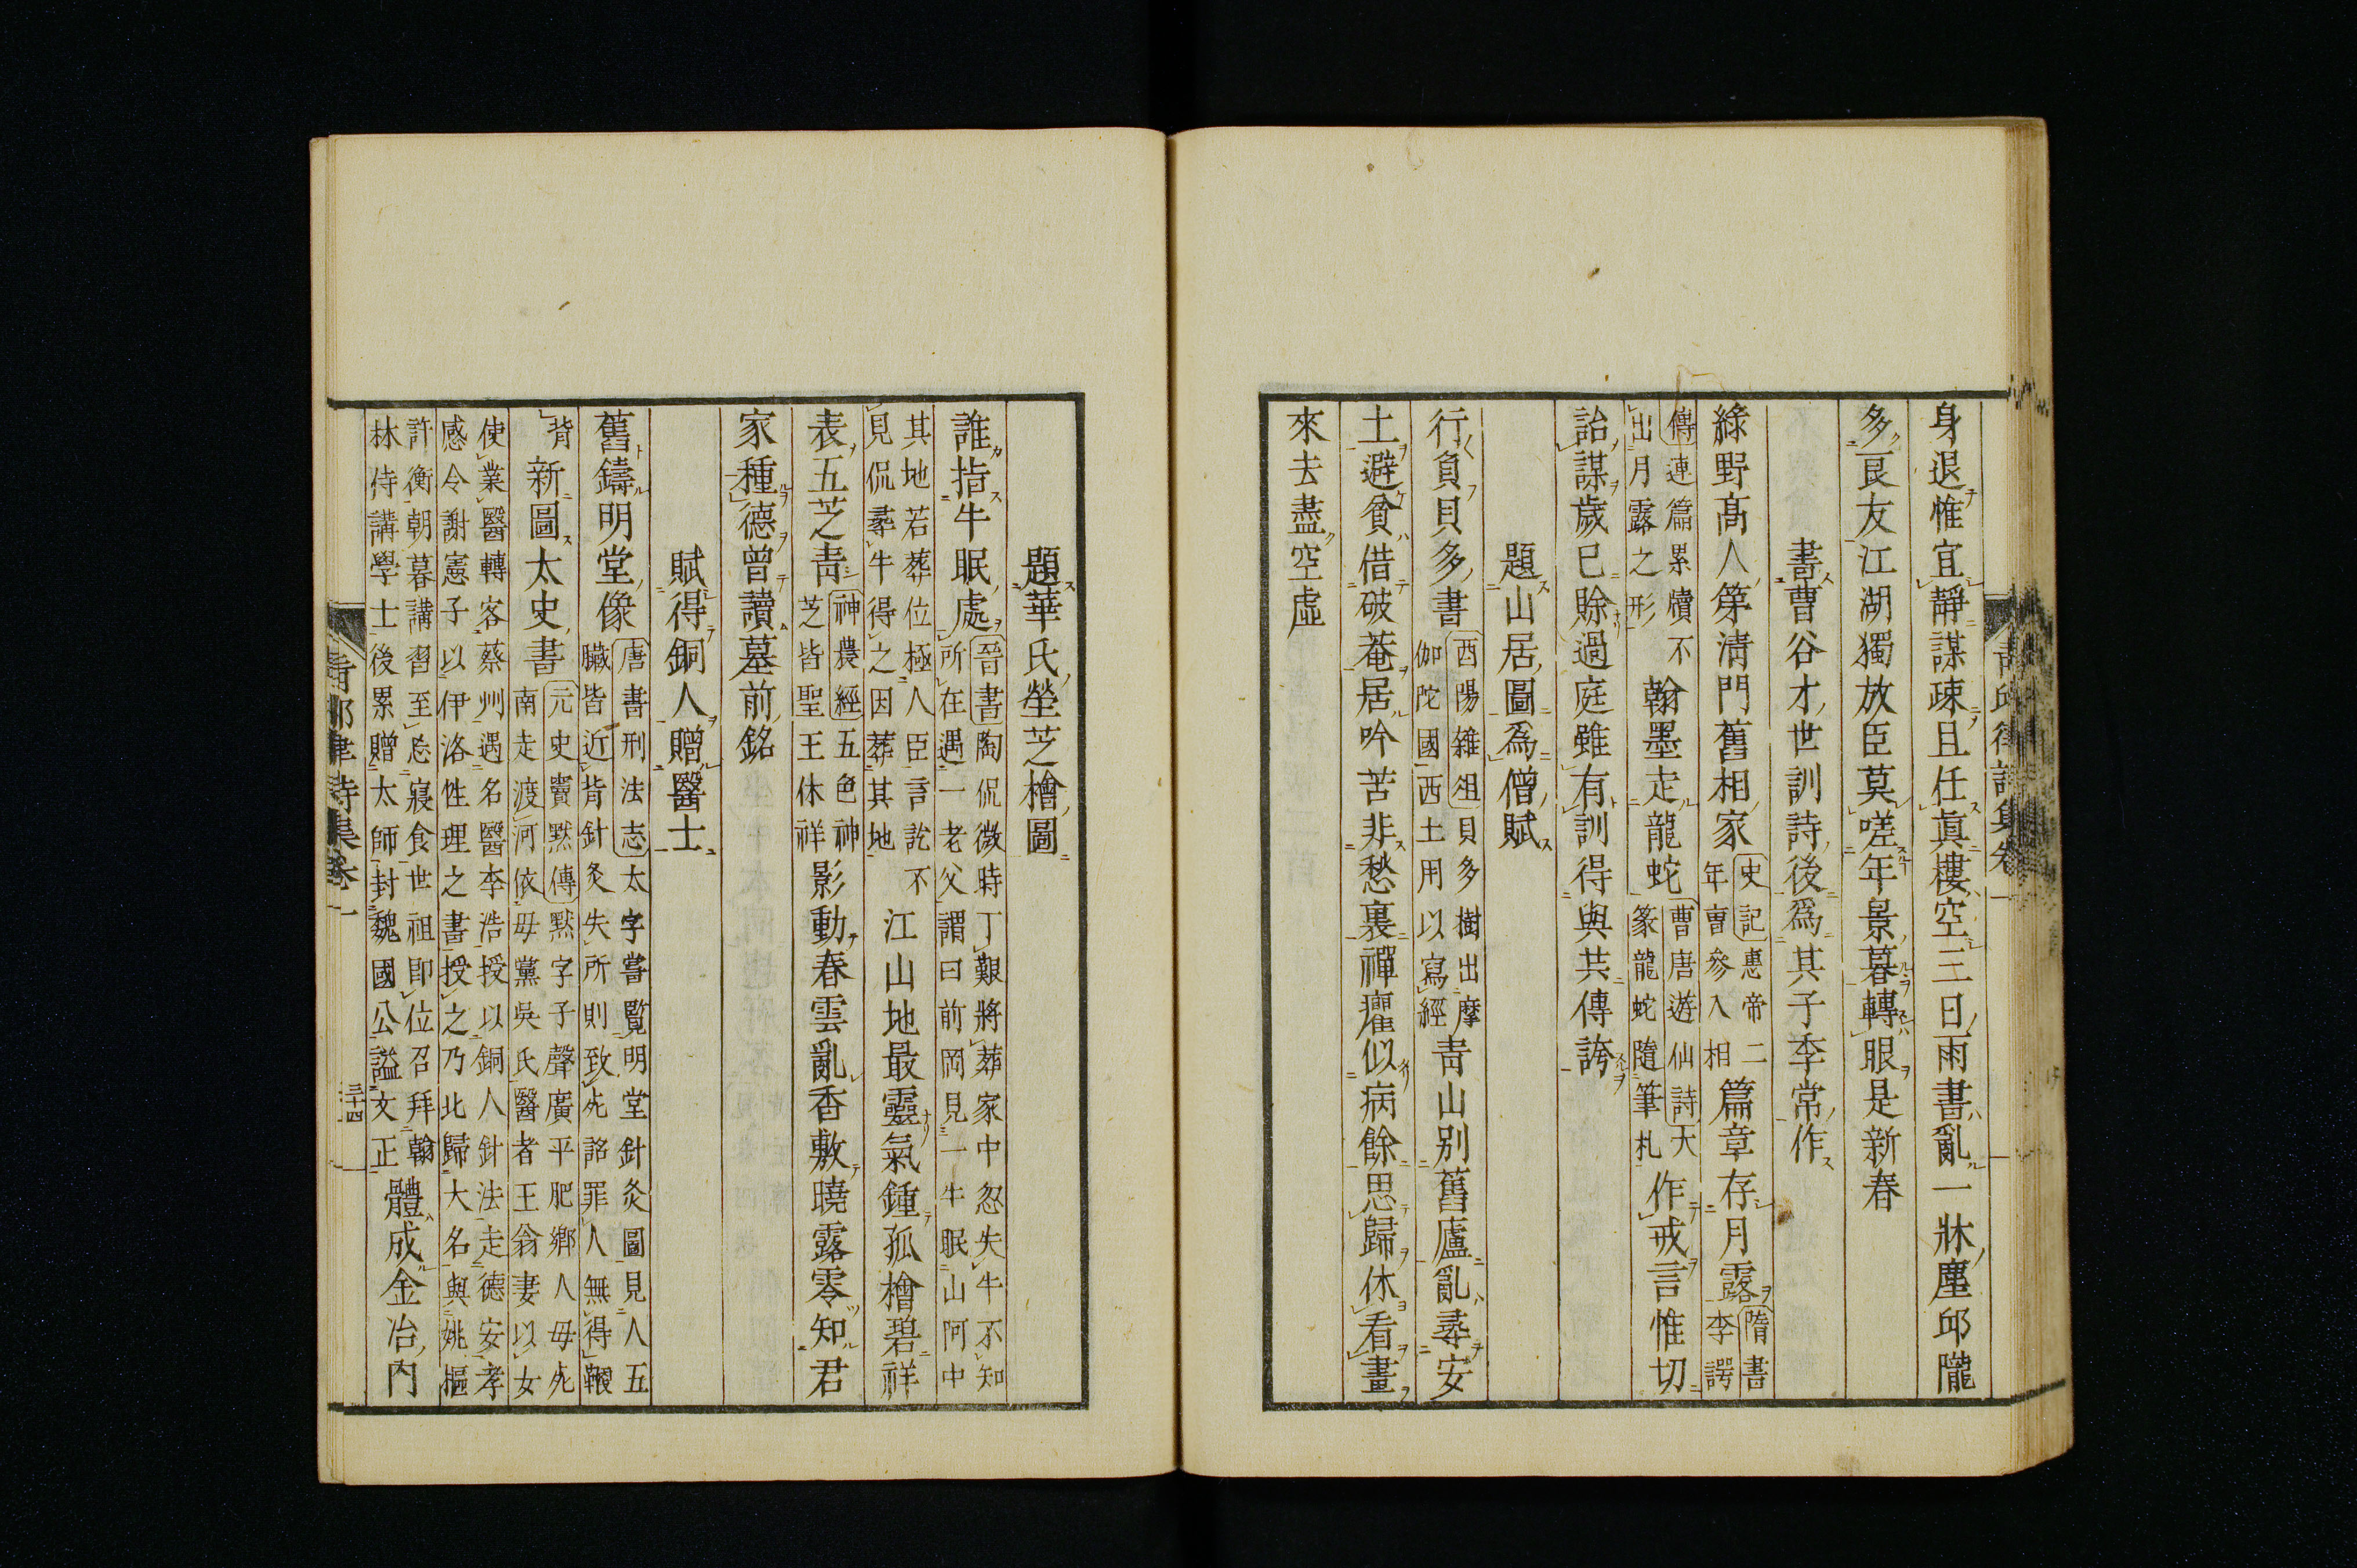 青邱律詩集卷一
身退惟宜靜謀疎且任眞樓空三日雨書亂一牀塵邱隴
多良友江湖獨放臣莫嗟年景暮轉眼是新春
書曹谷才世訓詩後爲其子季常作
綠野高人第淸門舊相家
史記惠帝二
年曹參入相
篇章存月露
隋書
李諤
傳連篇累牘不
出月露之形
翰墨走龍蛇
曹唐遊仙詩天
篆龍蛇隨筆札
作戒言惟切
詒謀歲已賒過庭雖有訓得與共傳誇
題山居圖爲僧賦
行負貝多書
酉陽雜俎貝多樹出摩
伽陀國西土用以寫經
靑山別舊廬亂尋安
土避貧借破菴居吟苦非愁裏禪癯似病餘思歸休看畫
來去盡空虛
題華氏塋芝檜圖
誰指牛眠處
晉書陶侃微時丁艱將葬家中忽失牛不知
所在遇一老父謂曰前岡見一牛眠山阿中
其地若葬位極人臣言訖不
見侃尋牛得之因葬其地
江山地最靈氣鍾孤檜碧祥
表五芝靑
神農經五色神
芝皆聖王休祥
影動春雲亂香敷曉露零知君
家種德曾讀墓前銘
賦得銅人贈醫士
舊鑄明堂像
唐書刑法志太宗嘗覽明堂針灸圖見人五
臟皆近背針灸失所則致死詔罪人無得鞭
背
新圖太史書
元史竇默傳默字子聲廣平肥鄉人毋死
南走渡河依母黨吳氏醫者王翁妻以女
使業醫轉客蔡州遇名醫李浩授以銅人針法走德安孝
感令謝憲子以伊洛性理之書授之乃北歸大名與姚樞
許衡朝暮講習至忘寢食世祖即位召拜翰
林侍講學士後累贈太師封魏國公諡文正
體成金冶內
靑邱律詩集卷一
三十四